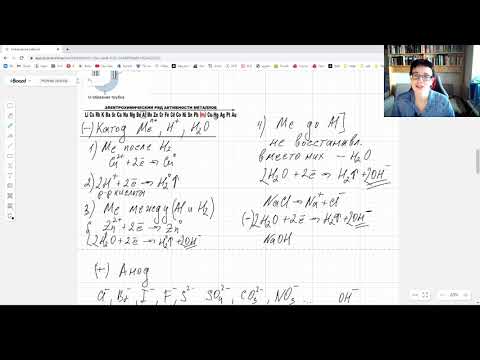 ЭЛЕКТРОХИМИЧЕСКИЙ РЯД АКТИВНОСТИ МЕТАЛЛОВ
Li Cs Rb K Ba Sr Ca Na Mg Be Al Mn Zn Cr Fe Cd Co Ni Sn Pb (H₂) Cu Hg Ag Pt Au
(−) Катод Meⁿ⁺, H⁺, H₂O
1) Me после H₂
Cu²⁺+2ē → Cu⁰
2) 2H⁺+2ē → H₂↑
р-р кислоты
3) Me между (Al и H₂)
Zn²⁺+2ē → Zn⁰
2H₂O+2ē → H₂↑+2OH⁻
4) Me до Al]
не восстанавл.
вместо них – H₂O
2H₂O+2ē → H₂↑+2OH⁻
NaCl → Na⁺+Cl⁻
(−) 2H₂O+2ē → H₂↑+2OH⁻
NaOH
(+) Анод
Cl⁻, Br⁻, I⁻, F⁻, S²⁻ SO₄²⁻, CO₃²⁻, NO₃⁻ ... OH⁻